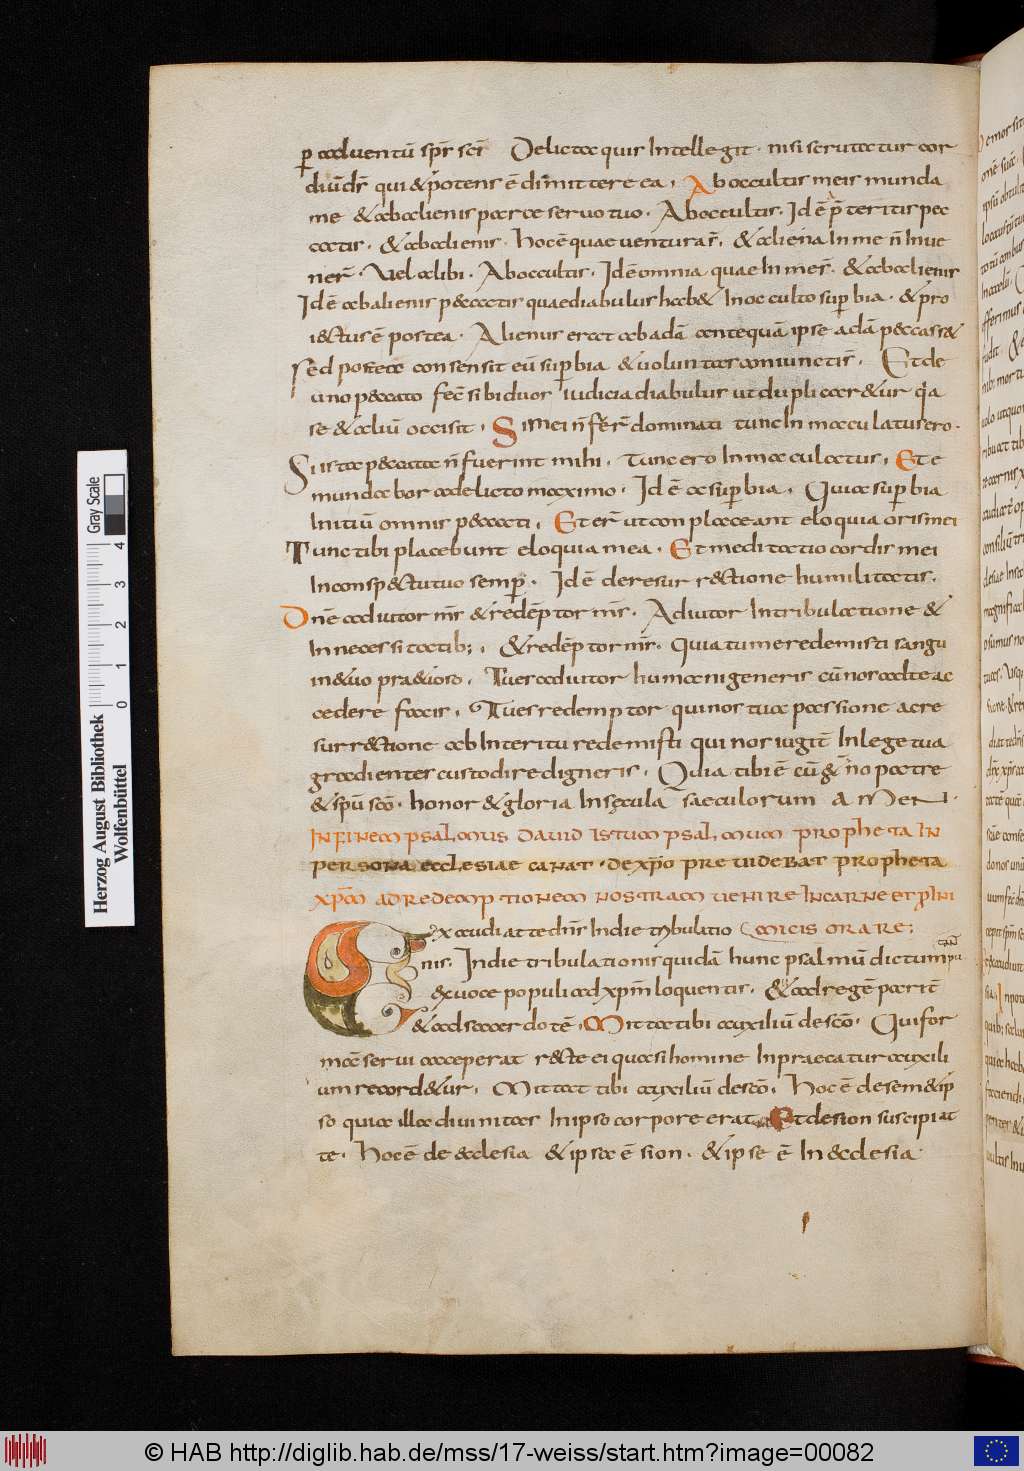 p̱ aduentū spr̄ sc̄i Delicta quis Intellegit · nisi scrutatur cor
diuidr̄ qui & potens ē dimittere ea · Ab occultis meis munda
me & ab alienis parce seruo tuo · Ab occultis · Id ē p̄teritis pec
catis · & ab alienis · hoc ē quae uentura s̄ · & aliena In me n̄ Inue
ner̄ · Vel alibi · Ab occultis · Id ē omnia quae In me s̄ · & ab alienis
Id ē ab alienis p&catis quae diabulus hab& In occulto sup̱bia · & pro
iectus ē postea · Alienus erat ab adā antequā ipse adā p&cass&
sed postea consensit cū sup̱bia & uoluntas coniunctis · Et de
uno p&cato fec̄ sibi duos iudicia diabulus ut duplicar&ur q̇a
se & aliū occisit · Si mei n̄ fer̄ dominati tunc In maculatus ero ·
Si ista p&cata n̄ fuerint mihi · Tunc ero In maculatus · Et e
mundabor a delicto maximo · Id ē a sup̱bia · Quia sup̱bia
Initiū omnis p&cati · Et er̄ ut conplaceant eloquia oris mei
Tunc tibi placebunt eloquia mea · Et meditatio cordis mei
In consp&tu tuo semp̱ · Id ē de resurrectione humilitatis ·
Dn̄e adiutor m̄s & redēptor m̄s · Adiutor In tribulatione &
In necessitatib; · & redēptor m̄s · Quia tu me redemisti sangu
in& uo pr&ioso · Tu es adiutor humani generis cū nos ad te ac
cedere facis · Tu es redemptor qui nos tua passione ac re
surrectione ab Interitu redemisti qui nos iugit̄ In lege tua
gradientes custodire digneris · Quia tibi ē cū & ̇no patre
& spū sc̄o · honor & gloria In sęcula saeculorum amen ·
IN FINEM PSALMUS DAUID ISTUM PSALMUM PROPHETA IN
PERSONA ECCLESIAE CANAT · DE XP̄O PREUIDEBAT PROPHETA
XP̄M AD REDEMPTIONEM NOSTRAM UENIRE IN CARNE ET P̱ INI
Exaudiat te dn̄s In die tribulatio MICIS ORARE;
nis · In die tribulationis quidā hunc psalmū dictum
& uoce populi ad xp̄m loquentis · & ad regē parit̄
& ad sacerdotē · Mittat tibi auxiliū de sc̄o · Qui for
mā serui acceperat recte ei quasi homine Inpraecatur auxili
um record&ur · Mittat tibi auxiliū de sc̄o · hoc ē de sem&ip
so quia illa diuinitas In ipso corpore erat Et de sion suscipiat
te · hoc ē de &clesia & ipsa ē sion · & ipse ē In &clesia
Herzog August Bibliothek
Wolfenbüttel
0 1 2 3 4
Gray Scale
© HAB http://diglib.hab.de/mss/17-weiss/start.htm?image=00082